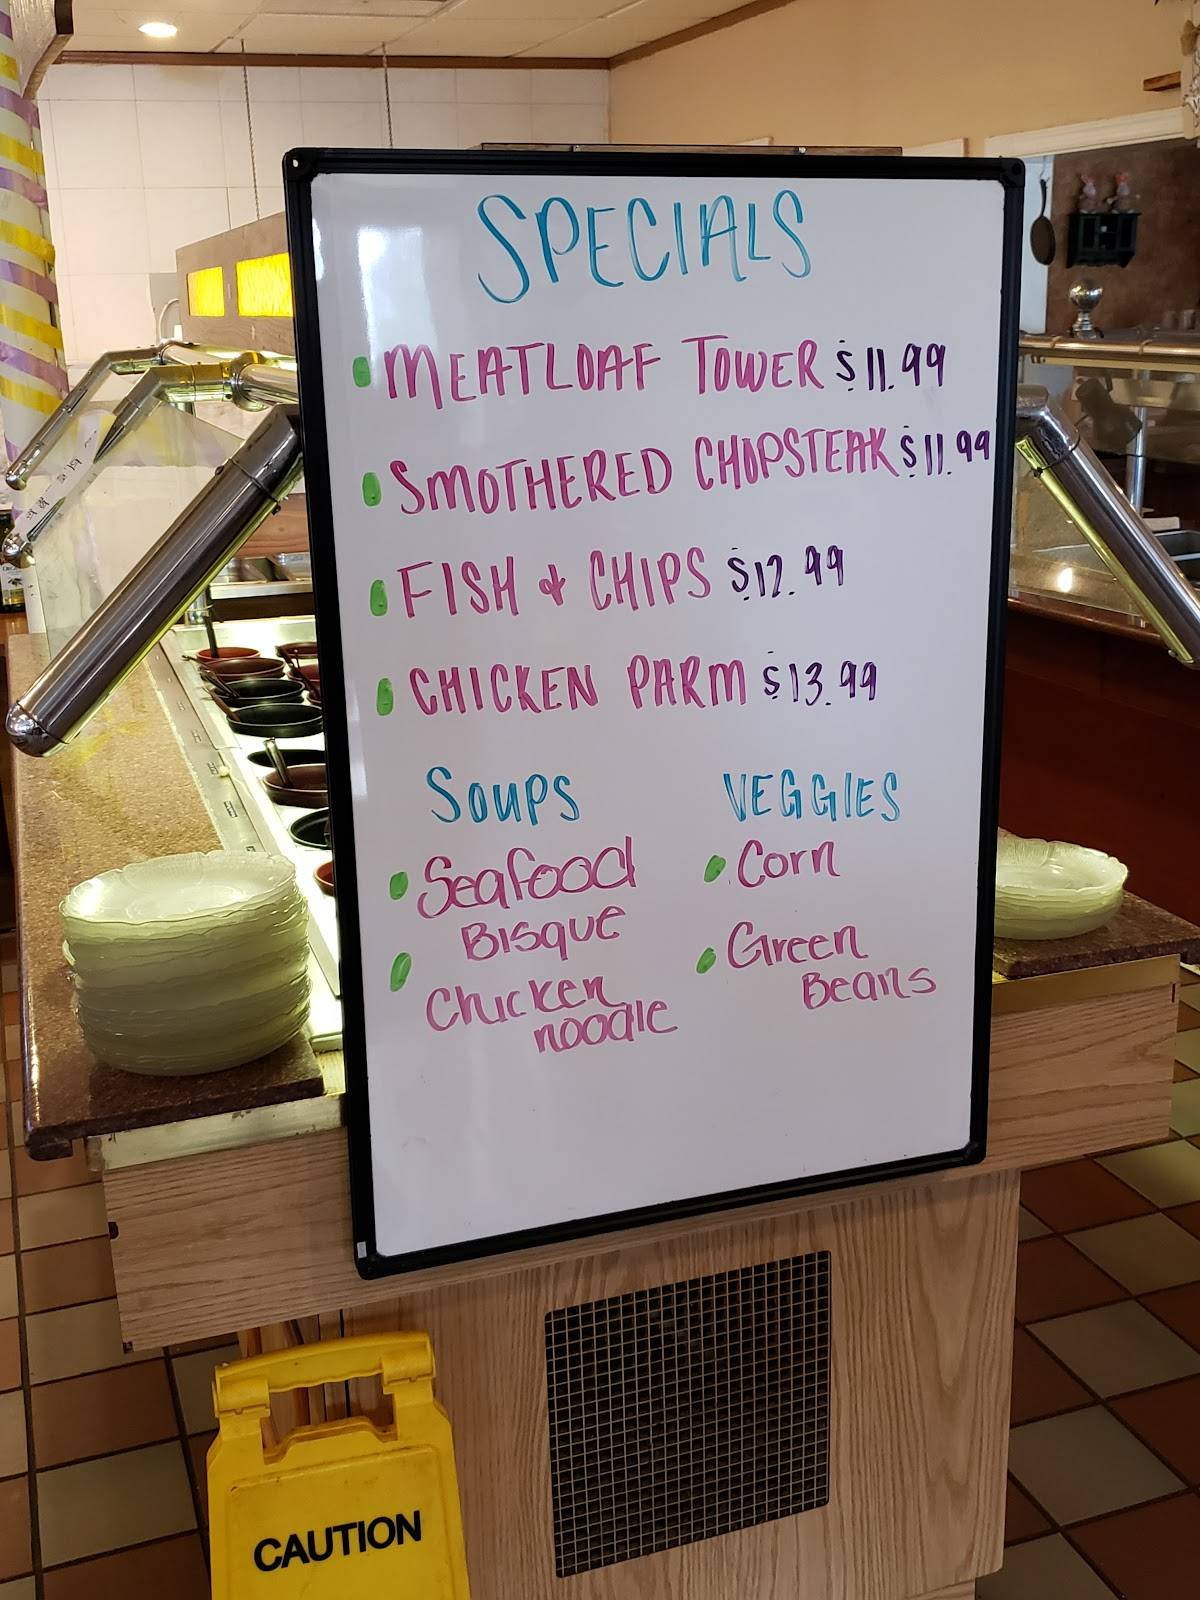 SPECIALS
MEATLOAF TOWER $11.99
SMOTHERED CHOPSTEAK $11.99
FISH & CHIPS $12.99
CHICKEN PARM $13.99
SOUPS
Seafood
Bisque
Chicken
noodle
VEGGIES
Corn
Green
Beans
CAUTION